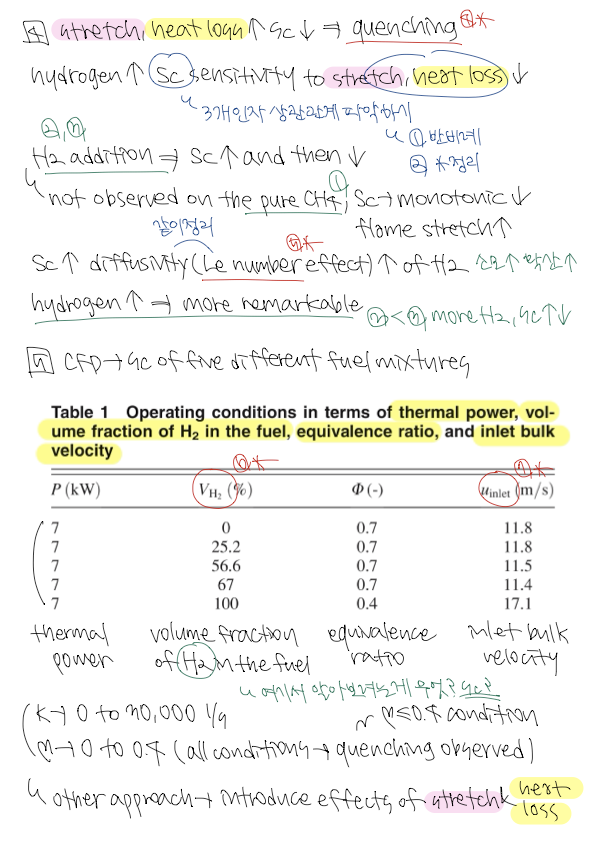 4 stretch, heat loss ↑ Sc ↓ ⇒ quenching ④*
hydrogen ↑ Sc sensitivity to stretch, heat loss ↓
↳ 3개인자 상관관계 파악하기
↳ ① 반비례
② 식정리
②, ⑤
H2 addition ⇒ Sc ↑ and then ↓
↳ not observed on the pure CH4, Sc → monotonic ↓
①
flame stretch ↑
같이정리
⑤*
Sc ↑ diffusivity (Le number effect) ↑ of H2 소모↑ 확산↑
hydrogen ↑ ⇒ more remarkable
② < ⑤, more H2, Sc ↑↓
5 CFD → Sc of five different fuel mixtures
Table 1 Operating conditions in terms of thermal power, vol-
ume fraction of H2 in the fuel, equivalence ratio, and inlet bulk
velocity
⑥* ⑦*
P (kW) VH2 (%) Φ (-) uinlet (m/s)
7 0 0.7 11.8
7 25.2 0.7 11.8
7 56.6 0.7 11.5
7 67 0.7 11.4
7 100 0.4 17.1
thermal volume fraction equivalence inlet bulk
power of H2 in the fuel ratio velocity
↳ 여기서 알아보려는게 무엇? Sc?
K → 0 to 20,000 1/s
β ≤ 0.4 condition
β → 0 to 0.4 (all conditions → quenching observed)
↳ other approach → introduce effects of stretch & heat
loss